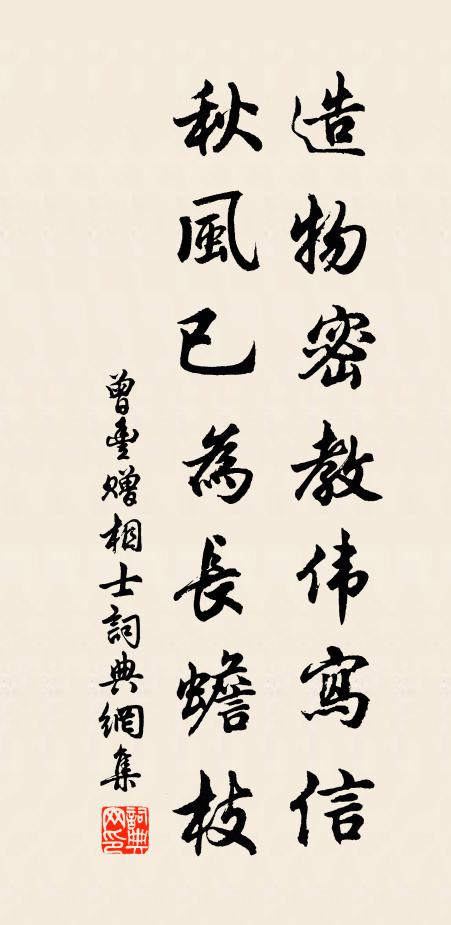 造物密教伟寫信
秋風已為長蟾枝
曾豊赠相士詞典網集
詞典网印